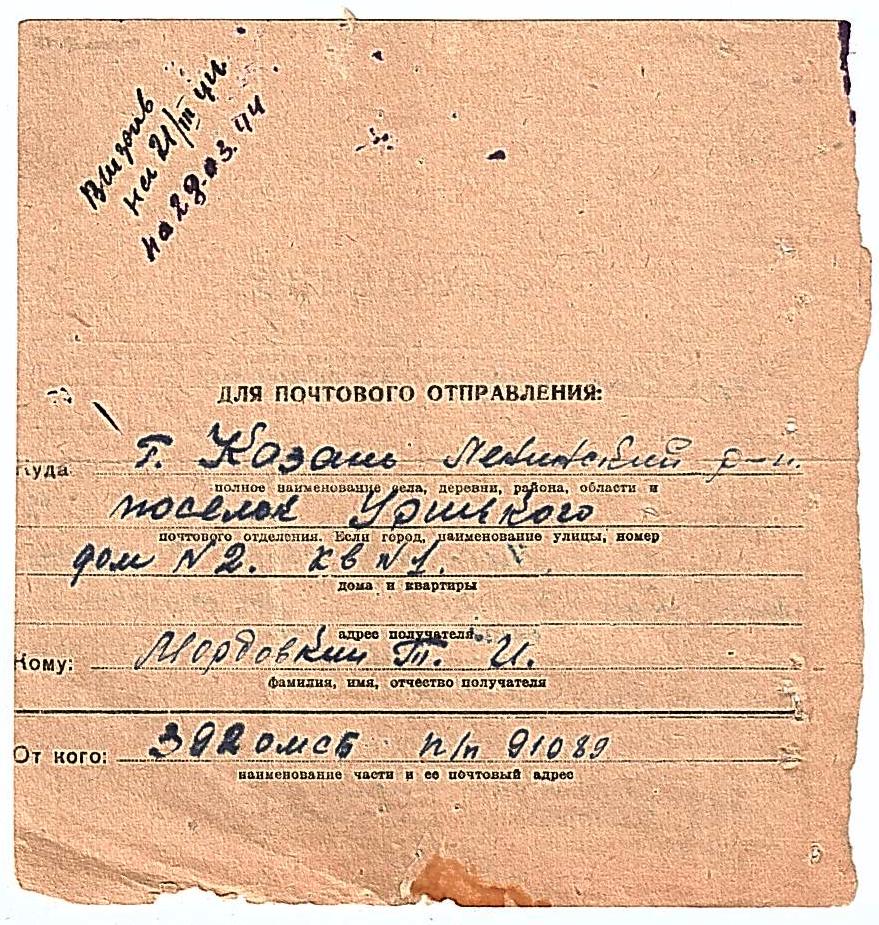 Вызов
на 21/III 44
на 28.03.44
ДЛЯ ПОЧТОВОГО ОТПРАВЛЕНИЯ:
Куда г. Казань Ленинский р-н.
полное наименование села, деревни, района, области и
поселок Урицкого
почтового отделения. Если город, наименование улицы, номер
дом N2. кв N1.
дома и квартиры
адрес получателя
Кому: Мордовкин Т. И.
фамилия, имя, отчество получателя
От кого: 392 омсб п/п 91089
наименование части и ее почтовый адрес